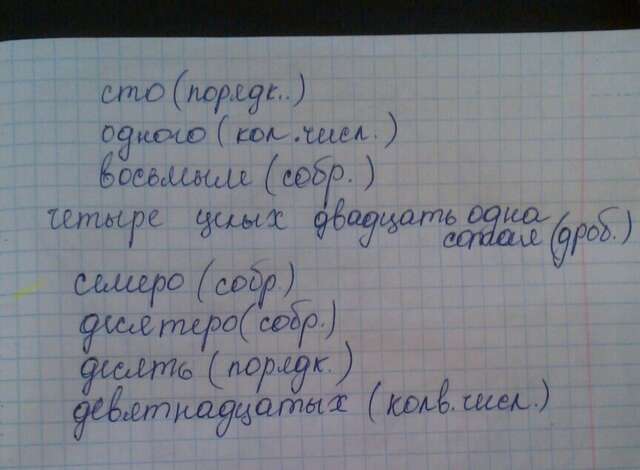 сто (порядк..)
одного (кол.числ.)
восьмыми (собр.)
четыре целых двадцать одна
сотая (дроб.)
семеро (собр.)
десятеро (собр.)
десять (порядк.)
девятнадцатых (колв.числ.)